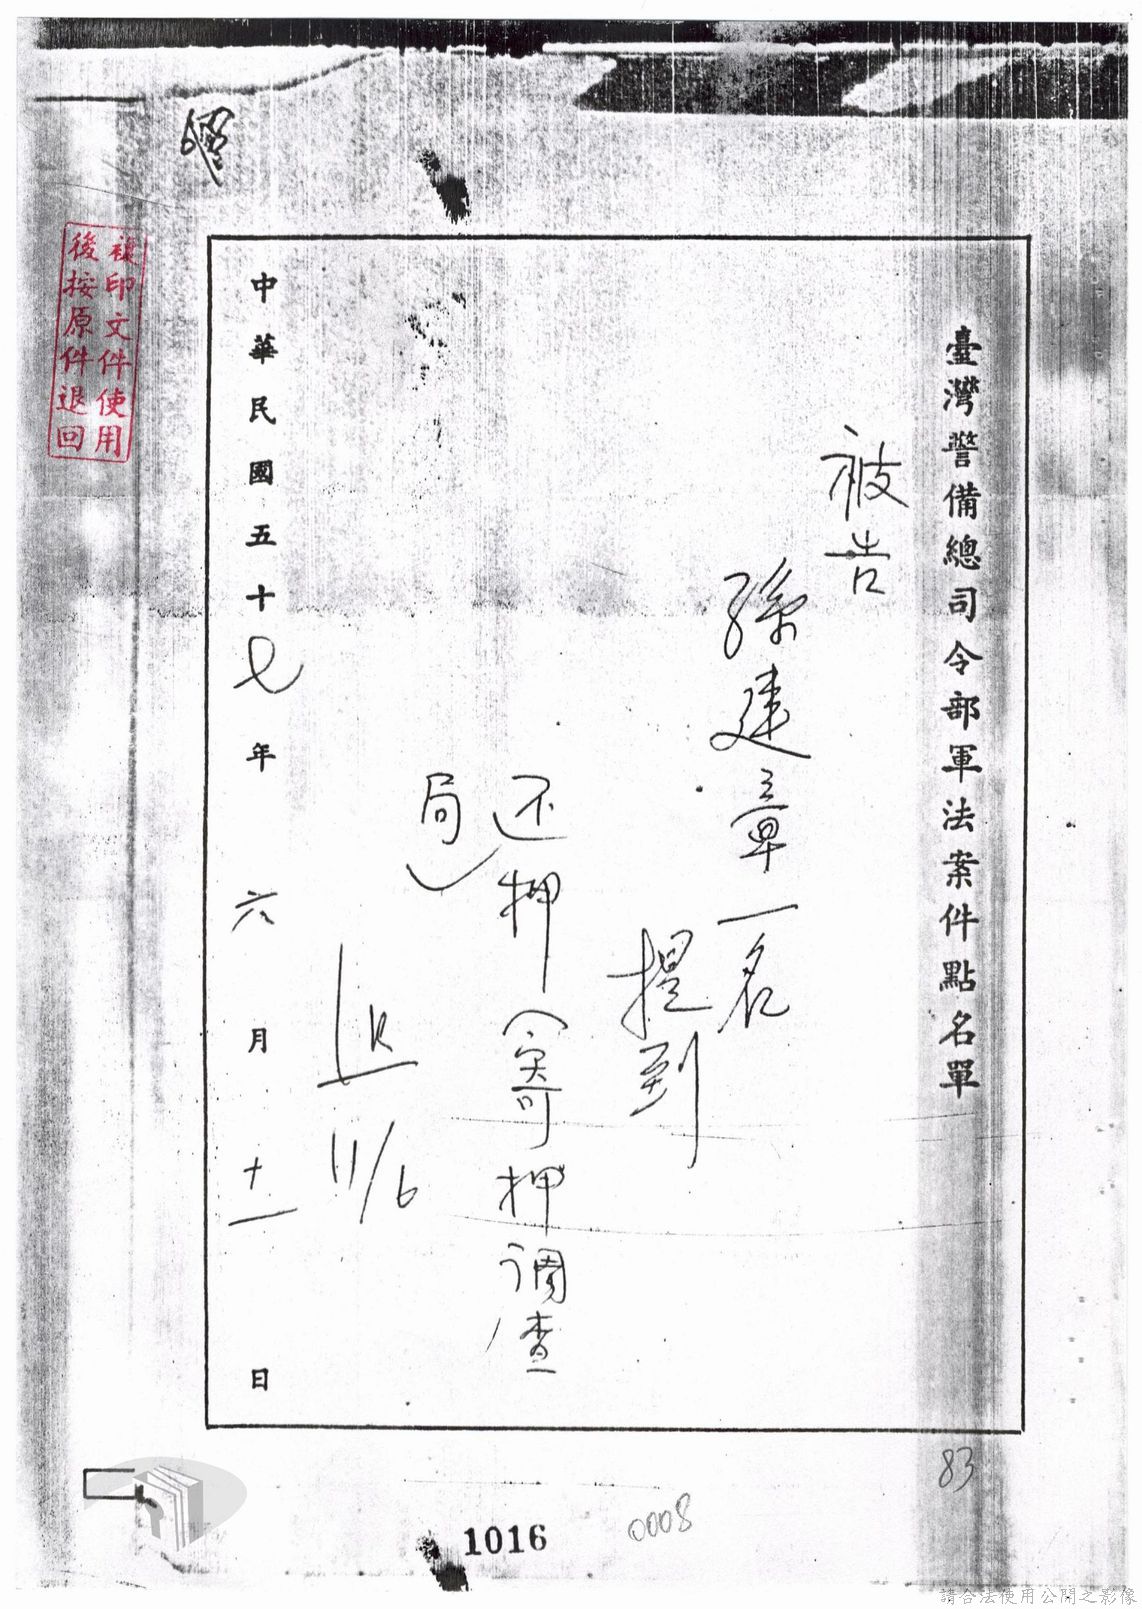 臺灣警備總司令部軍法案件點名單
被告
孫建章一名
提到
还押(寄押调查
局)
11/6
中華民國五十七年六月十一日
複印文件使用
後按原件退回
83
1016
0008
請合法使用公開之影像